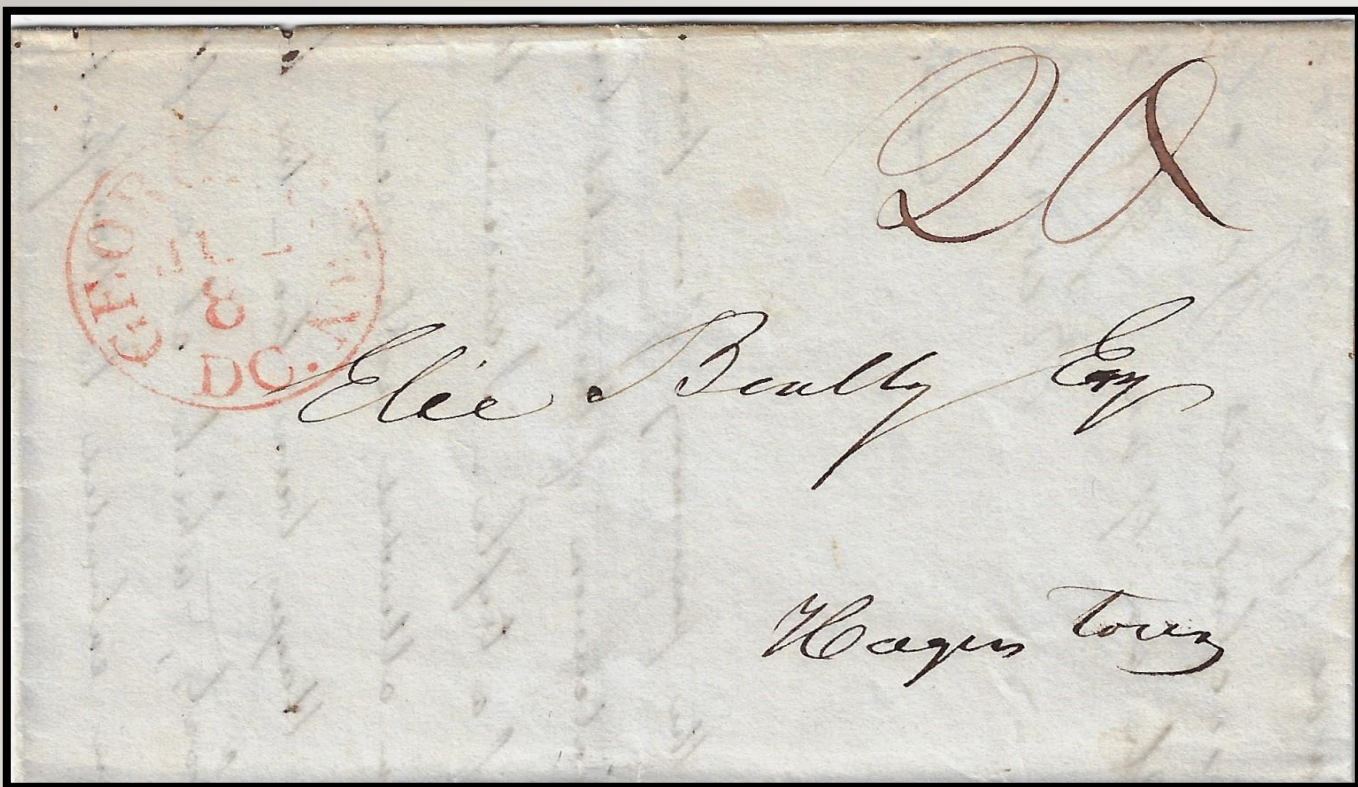 20
GEORGETOWN
8
DC.
Elie Beatty Esq
Hagers Town